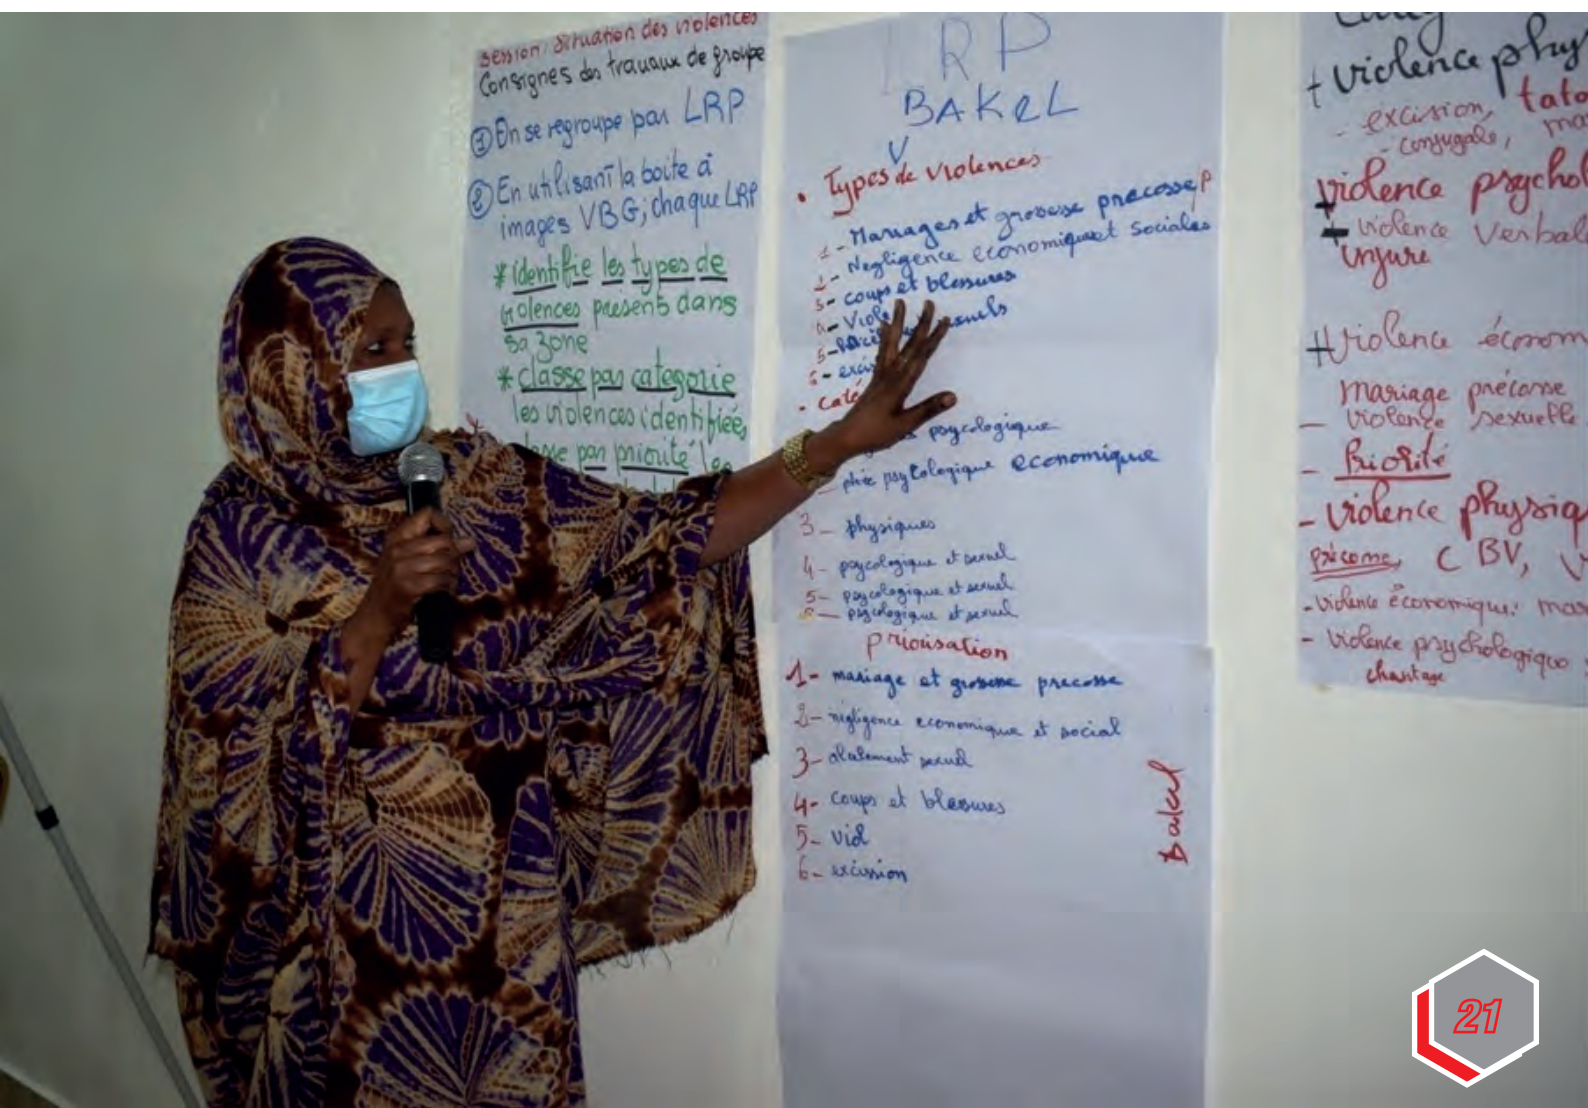 Session: Situation des violences
Consignes des travaux de groupe
① On se regroupe par LRP
② En utilisant la boite à
images VBG, chaque LRP
* identifie les types de
violences présents dans
sa zone
* classe par categorie
les violences identifiées
par priorité les
LRP
BAKEL
V
• Types de violences
1 - Mariages et grosesse precosse P
2 - Negligence economique et Sociales
3 - coups et blessures
4 - Viol
5 -
6 - excis
• Caté
psycologique
psycologique economique
3 - physiques
4 - psycologique et sexuel
5 - psycologique et sexuel
6 - psycologique et sexuel
priorisation
1 - mariage et grosesse precosse
2 - négligence economique et social
3 - sexuel
4 - coups et blessures
5 - viol
6 - excission
Bakel
+ violence phys
- excision, tato
- conjugale, ma
violence psychol
+ violence verbal
injure
+ violence économ
mariage précosse
- violence sexuelle
- Priorité
- violence physiq
C BV, V
- violence économique: mar
- violence psychologique
chantage
21